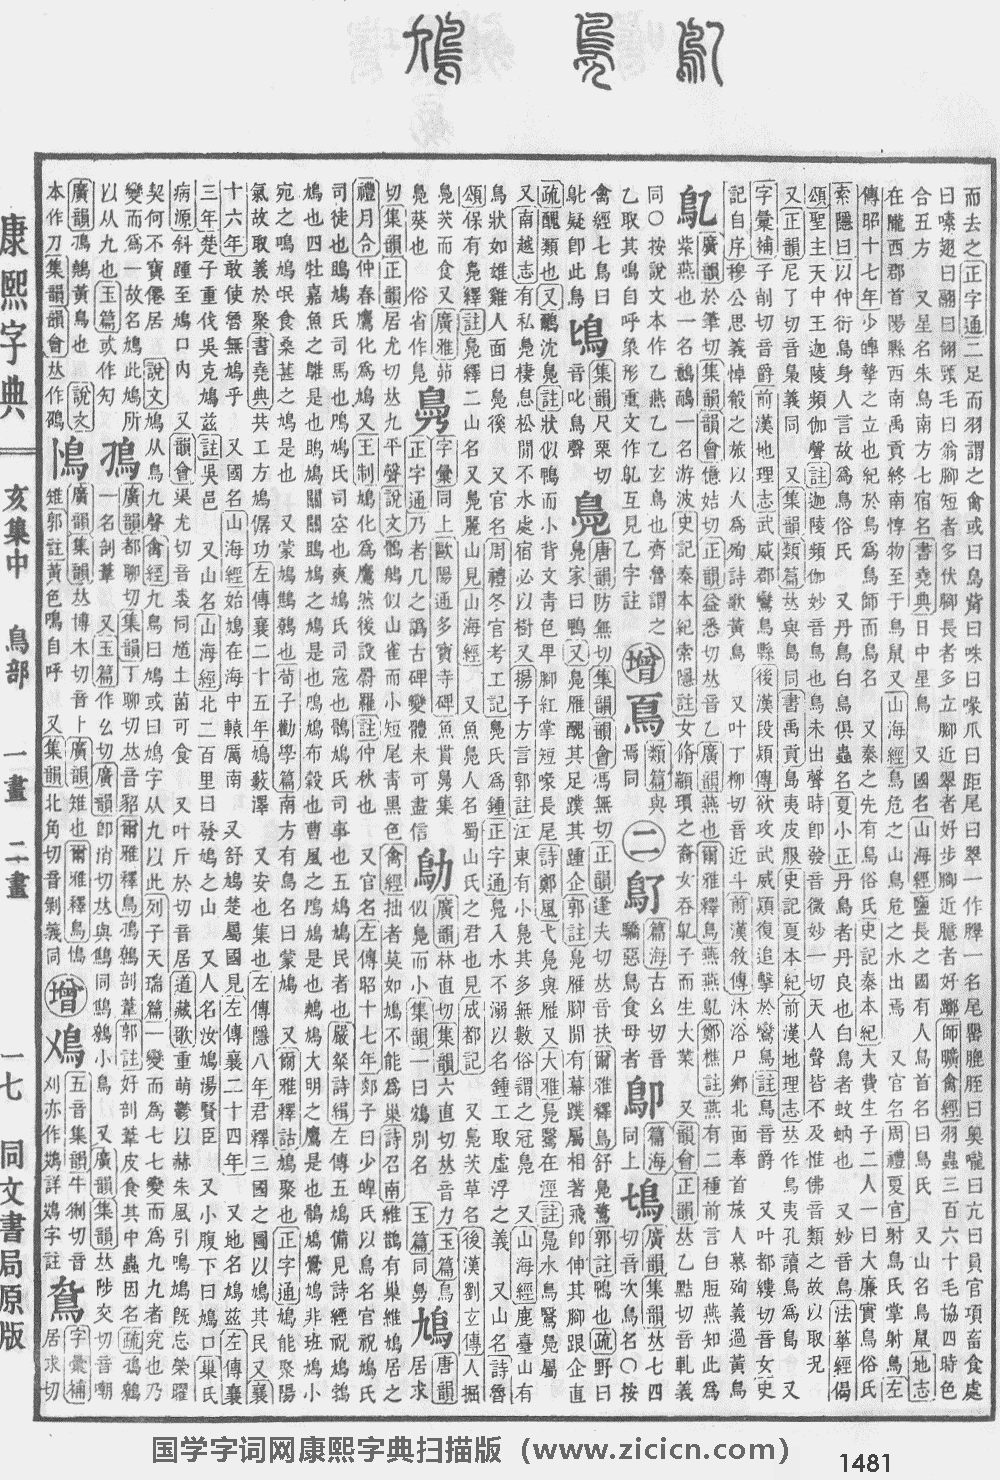 康熙字典 亥集中 鳥部 一畫 二畫 一七 同文書局原版
而去之正字通二足而羽謂之禽或曰鳥觜曰咮曰喙爪曰距尾曰翠一作臎一名尾罌膍胵曰奧嚨曰亢曰員官項畜食處
曰嗉翅曰翮曰翎頸毛曰翁腳短者多伏腳長者多立腳近翠者好步腳近臆者好躑師曠禽經羽蟲三百六十毛協四時色
合五方　又星名朱鳥南方七宿名書堯典日中星鳥　又國名山海經鹽長之國有人鳥首名曰鳥氏　又山名鳥鼠地志
在隴西郡首陽縣西南禹貢終南惇物至于鳥鼠又山海經鳥危之山鳥危之水出焉　又官名周禮夏官射鳥氏掌射鳥左
傳昭十七年少皥摯之立也紀於鳥爲鳥師而鳥名　又秦之先有鳥俗氏史記秦本紀大費生子二人一曰大廉實鳥俗氏
索隱曰以仲衍鳥身人言故爲鳥俗氏　又丹鳥白鳥俱蟲名夏小正丹鳥者丹良也白鳥者蚊蚋也　又妙音鳥法華經偈
頌聖主天中王迦陵頻伽聲註迦陵頻伽妙音鳥也鳥未出聲時卽發音微妙一切天人聲皆不及惟佛音類之故以取況
又正韻尼了切音裊義同　又集韻類篇𠀤與島同書禹貢島夷皮服史記夏本紀前漢地理志𠀤作鳥夷孔讀鳥爲島　又
字彙補子削切音爵前漢地理志武威郡鸞鳥縣後漢段熲傳欲攻武威熲復追擊於鸞鳥註鳥音爵　又叶都縷切音女史
記自序穆公思義悼殽之旅以人爲殉詩歌黃鳥　又叶丁柳切音近斗前漢敘傳沐浴尸鄉北面奉首旅人慕殉義過黃鳥
鳦廣韻於筆切集韻韻會億姞切正韻益悉切𠀤音乙廣韻燕也爾雅釋鳥燕燕鳦鄭樵註燕有二種前言白脰燕知此爲
紫燕也一名鷾鴯一名游波史記秦本紀索隱註女脩顓頊之裔女吞鳦子而生大業　又韻會正韻𠀤乙黠切音軋義
同○按說文本作乙燕乙乙玄鳥也齊魯謂之
乙取其鳴自呼象形重文作鳦互見乙字註
增　類篇與焉同　二　篇海古幺切音驕惡鳥食母者　篇海同上　廣韻集韻𠀤七四切音次鳥名○按
禽經七鳥曰鳦疑卽此鳥　鳲集韻尺栗切音叱鳥聲
鳧唐韻防無切集韻韻會馮無切正韻逢夫切𠀤音扶爾雅釋鳥舒鳧鶩郭註鴨也疏野曰
鳧家曰鴨又鳧雁醜其足蹼其踵企郭註鳧雁腳閒有幕蹼屬相著飛卽伸其腳跟企直
疏醜類也又鸍沈鳧註狀似鴨而小背文靑色卑腳紅掌短喙長尾詩鄭風弋鳧與雁又大雅鳧鷖在涇註鳧水鳥鷖鳧屬
又南越志有私鳧棲息松閒不水處宿必以樹又揚子方言郭註江東有小鳧其多無數俗謂之冠鳧　又山海經鹿臺山有
鳥狀如雄雞人面曰鳧徯　又官名周禮冬官考工記鳧氏爲鍾正字通鳧入水不溺以名鍾工取虛浮之義　又山名詩魯
頌保有鳧繹註鳧繹二山名又鳧麗山見山海經　又魚鳧人名蜀山氏之君也見成都記　又鳧茨草名後漢劉立傳人掘
鳧茨而食又廣雅茆鳧葵也　俗省作鳬
字彙同上歐陽通多寶寺碑魚貫鳧集正字通乃者几之譌古碑變體未可盡信
鳨廣韻林直切集韻六直切𠀤音力玉篇鳥似鳧而小集韻一曰鴱別名　玉篇同鳨
鳩唐韻居求切集韻正韻居尤切𠀤九平聲說文鶻鵃似山雀而小短尾靑黑色禽經拙者莫如鳩不能爲巢詩召南維鵲有巢維鳩居之
禮月令仲春鷹化爲鳩又王制鳩化爲鷹然後設罻羅註仲秋也　又官名左傳昭十七年郯子曰少皥氏以鳥名官祝鳩氏
司徒也鴡鳩氏司馬也鳲鳩氏司空也爽鳩氏司寇也鶻鳩氏司事也五鳩鳩民者也嚴粲詩緝左傳五鳩備見詩經祝鳩鵻
鳩也四牡嘉魚之鵻是也鴡鳩關關鴡鳩是也鳲鳩布穀也曹風之鳲鳩是也鷞鳩大明之鷹是也鶻鳩鷽鳩非班鳩小
宛之鳴鳩氓食桑葚之鳩是也　又蒙鳩鷦鷯也荀子勸學篇南方有鳥名曰蒙鳩　又爾雅釋詁鳩聚也正字通鳩能聚陽
氣故取義於聚書堯典共工方鳩僝功左傳襄二十五年鳩藪澤　又安也集也左傳隱八年君釋三國之圖以鳩其民又襄
十六年敢使魯無鳩乎　又國名山海經始鳩在海中轅厲南　又舒鳩楚屬國見左傳襄二十四年　又地名鳩兹左傳襄
三年楚子重伐吳克鳩兹註吳邑　又山名山海經北二百里曰發鳩之山　又人名汝鳩湯賢臣　又小腹下曰鳩口巢氏
病源斜踵至鳩口內　又韻會渠尤切音裘同馗土菌可食　又叶斤於切音居道藏歌重萌鬱以赫朱風引鳴鳩旣忘榮曜
契何不寶僊居　說文鳩从鳥九聲禽經九鳥曰鳩或曰鳩字从九以此列子天瑞篇一變而爲七七變而爲九九者究也乃
變而爲一故名鳩此鳩所以从九也玉篇或作勼
鳭廣韻都聊切集韻丁聊切𠀤音貂爾雅釋鳥鳭鷯剖葦郭註好剖葦皮食其中蟲因名疏鳭鷯
一名剖葦　又玉篇作幺切廣韻卽消切𠀤與鷦同鷦鷯小鳥　又廣韻集韻𠀤陟交切音嘲
廣韻鳭鷯黃鳥也　說文本作刀集韻韻會𠀤作鴖
廣韻集韻𠀤博木切音卜廣韻雉也爾雅釋鳥鳪雉郭註黃色鳴自呼　又集韻北角切音剝義同
增　五音集韻牛㓨切音刈亦作鴱詳鴱字註　字彙補居求切
国学字词网康熙字典扫描版（www.zicicn.com）
1481